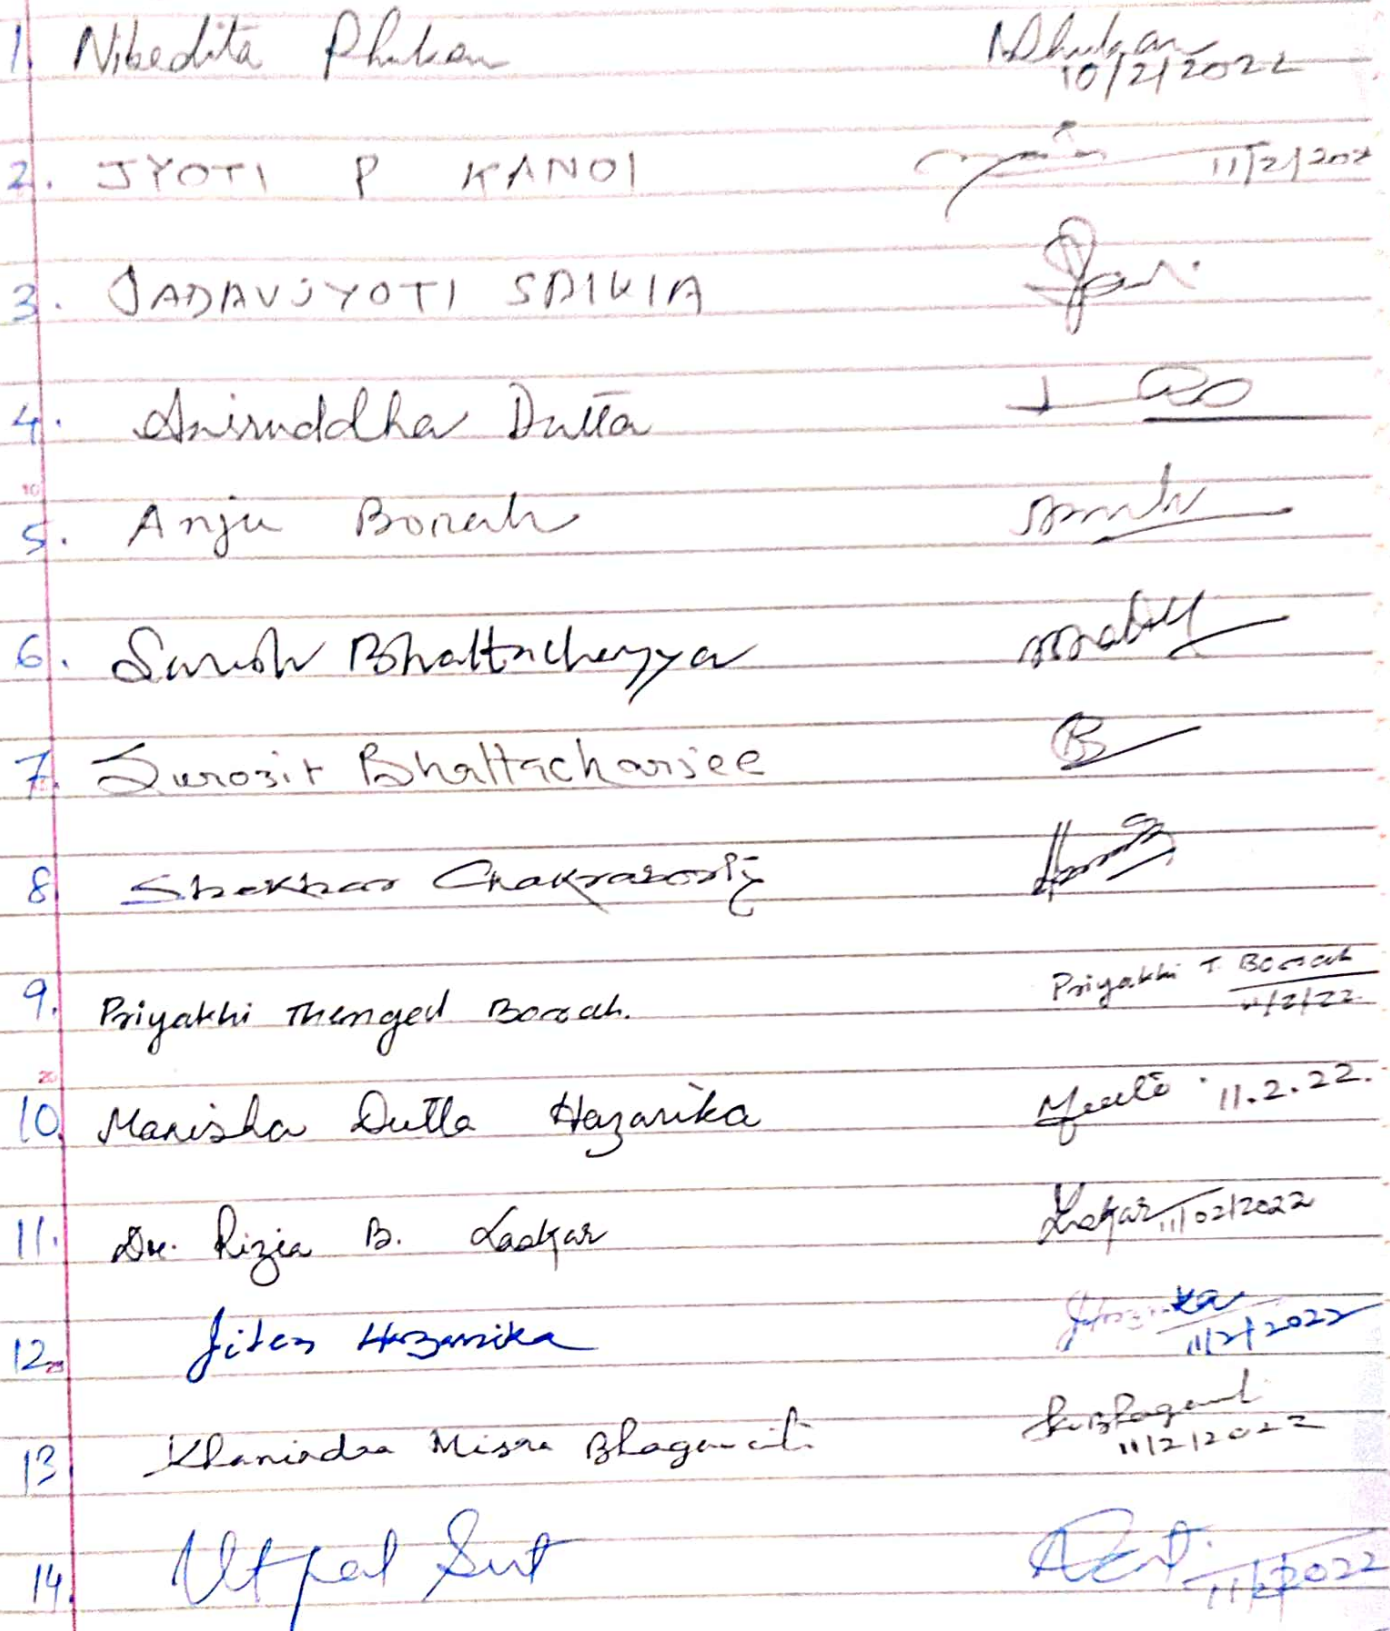 1. Nibedita Phukan NPhukan
10/2/2022
2. JYOTI P KANOI 11/2/202
3. JADAVJYOTI SAIKIA
4. Aniruddha Dutta
10
5. Anju Borah
6. Suresh Bhattacharyya
7. Surozit Bhattacharjee
8 Shekhar Chakraborty
9. Priyakhi Thenged Borah. Priyakhi T. Borah
11/2/22
20
10. Manisha Dutta Hazarika 11.2.22.
11. Dr. Rizia B. Laskar Laskar 11/02/2022
12. Jiten Hazarika JHazarika
11/2/2022
13 Khanindra Misra Bhagawati
11/2/2022
14. Utpal Sut
11/2/2022